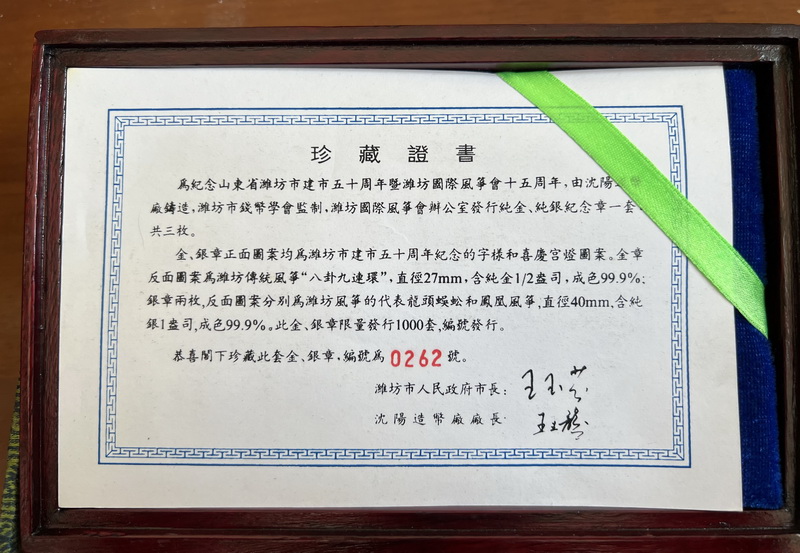 珍藏證書
爲紀念山東省濰坊市建市五十周年暨濰坊國際風箏會十五周年，由沈陽
廠鑄造，濰坊市錢幣學會監制，濰坊國際風箏會辦公室發行純金、純銀紀念章一套
共三枚。
金、銀章正面圖案均爲濰坊市建市五十周年紀念的字樣和喜慶宮燈圖案。金章
反面圖案爲濰坊傳統風箏“八卦九連環”，直徑27mm，含純金1/2盎司，成色99.9%；
銀章兩枚，反面圖案分別爲濰坊風箏的代表龍頭蜈蚣和鳳凰風箏，直徑40mm，含純
銀1盎司，成色99.9%。此金、銀章限量發行1000套，編號發行。
恭喜閣下珍藏此套金、銀章，編號爲0262號。
濰坊市人民政府市長：
沈陽造幣廠廠長